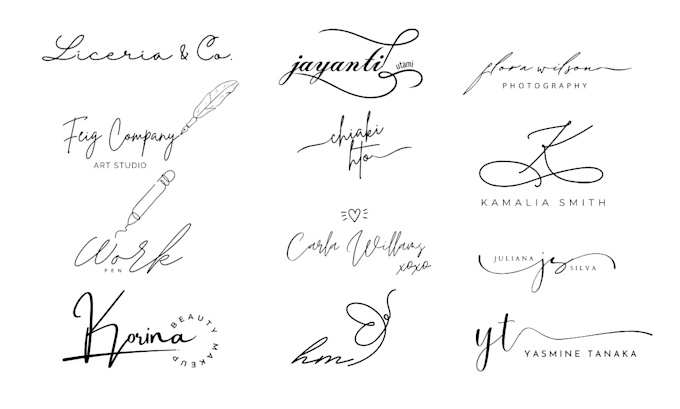 Liceria & Co.
jayanti
utami
flora wilson
PHOTOGRAPHY
Feig Company
ART STUDIO
chiaki
hto
K
KAMALIA SMITH
Work
PEN
Carla Willams
xoxo
JULIANA js SILVA
Korina
BEAUTY MAKEUP
hm
yt
YASMINE TANAKA